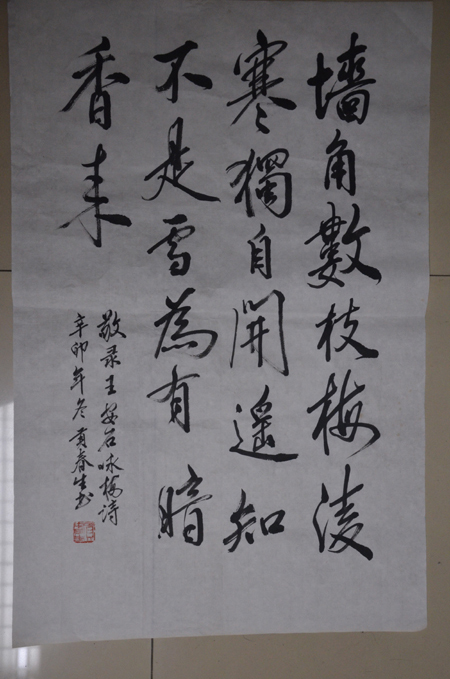 墙角數枝梅凌
寒獨自開遥知
不是雪為有暗
香来
敬录王安石咏梅诗
辛卯年冬黄春生书